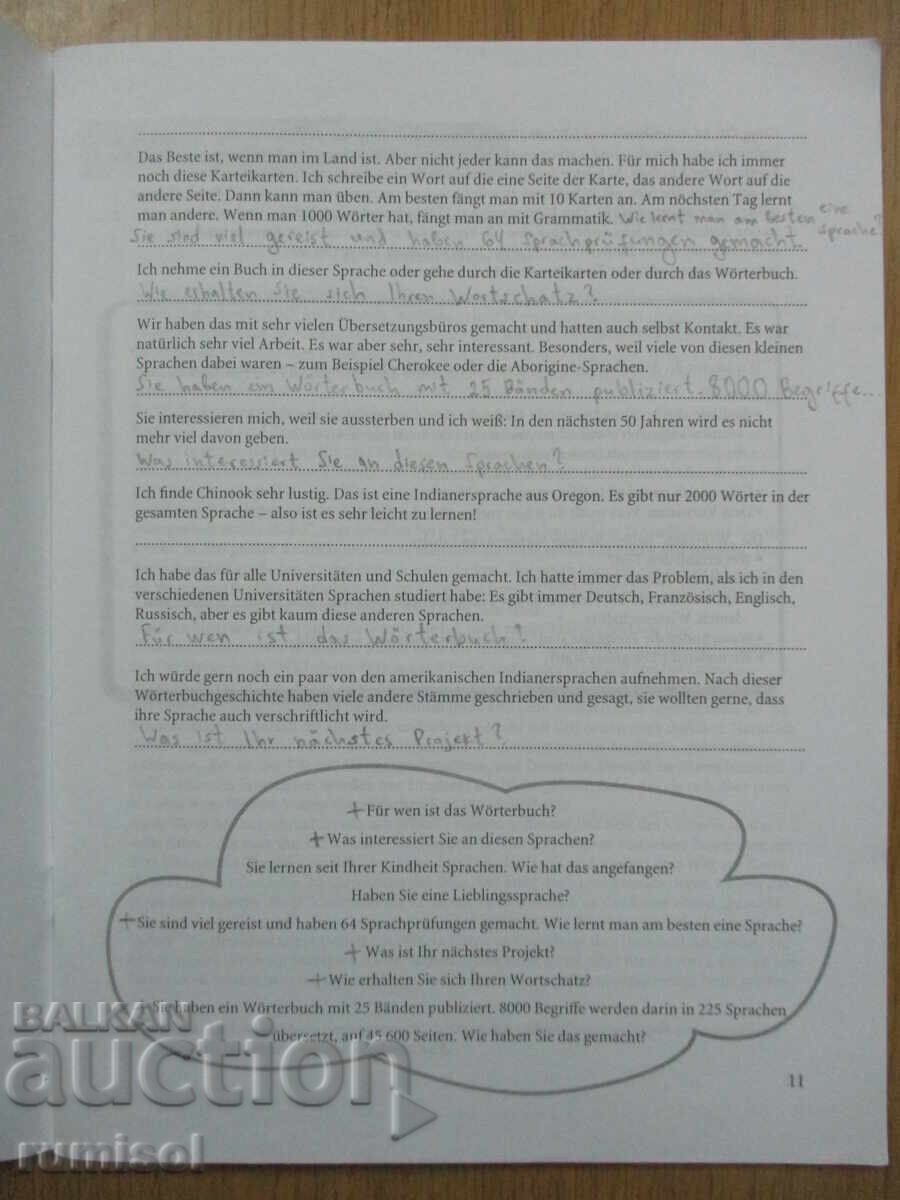 Das Beste ist, wenn man im Land ist. Aber nicht jeder kann das machen. Für mich habe ich immer
noch diese Karteikarten. Ich schreibe ein Wort auf die eine Seite der Karte, das andere Wort auf die
andere Seite. Dann kann man üben. Am besten fängt man mit 10 Karten an. Am nächsten Tag lernt
man andere. Wenn man 1000 Wörter hat, fängt man an mit Grammatik. Wie lernt man am besten eine
Sprache?
Sie sind viel gereist und haben 64 Sprachprüfungen gemacht.
Ich nehme ein Buch in dieser Sprache oder gehe durch die Karteikarten oder durch das Wörterbuch.
Wie erhalten Sie sich Ihren Wortschatz?
Wir haben das mit sehr vielen Übersetzungsbüros gemacht und hatten auch selbst Kontakt. Es war
natürlich sehr viel Arbeit. Es war aber sehr, sehr interessant. Besonders, weil viele von diesen kleinen
Sprachen dabei waren – zum Beispiel Cherokee oder die Aborigine-Sprachen.
Sie haben ein Wörterbuch mit 25 Bänden publiziert. 8000 Begriffe...
Sie interessieren mich, weil sie aussterben und ich weiß: In den nächsten 50 Jahren wird es nicht
mehr viel davon geben.
Was interessiert Sie an diesen Sprachen?
Ich finde Chinook sehr lustig. Das ist eine Indianersprache aus Oregon. Es gibt nur 2000 Wörter in der
gesamten Sprache – also ist es sehr leicht zu lernen!
Ich habe das für alle Universitäten und Schulen gemacht. Ich hatte immer das Problem, als ich in den
verschiedenen Universitäten Sprachen studiert habe: Es gibt immer Deutsch, Französisch, Englisch,
Russisch, aber es gibt kaum diese anderen Sprachen.
Für wen ist das Wörterbuch?
Ich würde gern noch ein paar von den amerikanischen Indianersprachen aufnehmen. Nach dieser
Wörterbuchgeschichte haben viele andere Stämme geschrieben und gesagt, sie wollten gerne, dass
ihre Sprache auch verschriftlicht wird.
Was ist Ihr nächstes Projekt?
+ Für wen ist das Wörterbuch?
+ Was interessiert Sie an diesen Sprachen?
Sie lernen seit Ihrer Kindheit Sprachen. Wie hat das angefangen?
Haben Sie eine Lieblingssprache?
+ Sie sind viel gereist und haben 64 Sprachprüfungen gemacht. Wie lernt man am besten eine Sprache?
+ Was ist Ihr nächstes Projekt?
+ Wie erhalten Sie sich Ihren Wortschatz?
+ Sie haben ein Wörterbuch mit 25 Bänden publiziert. 8000 Begriffe werden darin in 225 Sprachen
übersetzt, auf 45 600 Seiten. Wie haben Sie das gemacht?
11
BALKAN
auction
rumisol